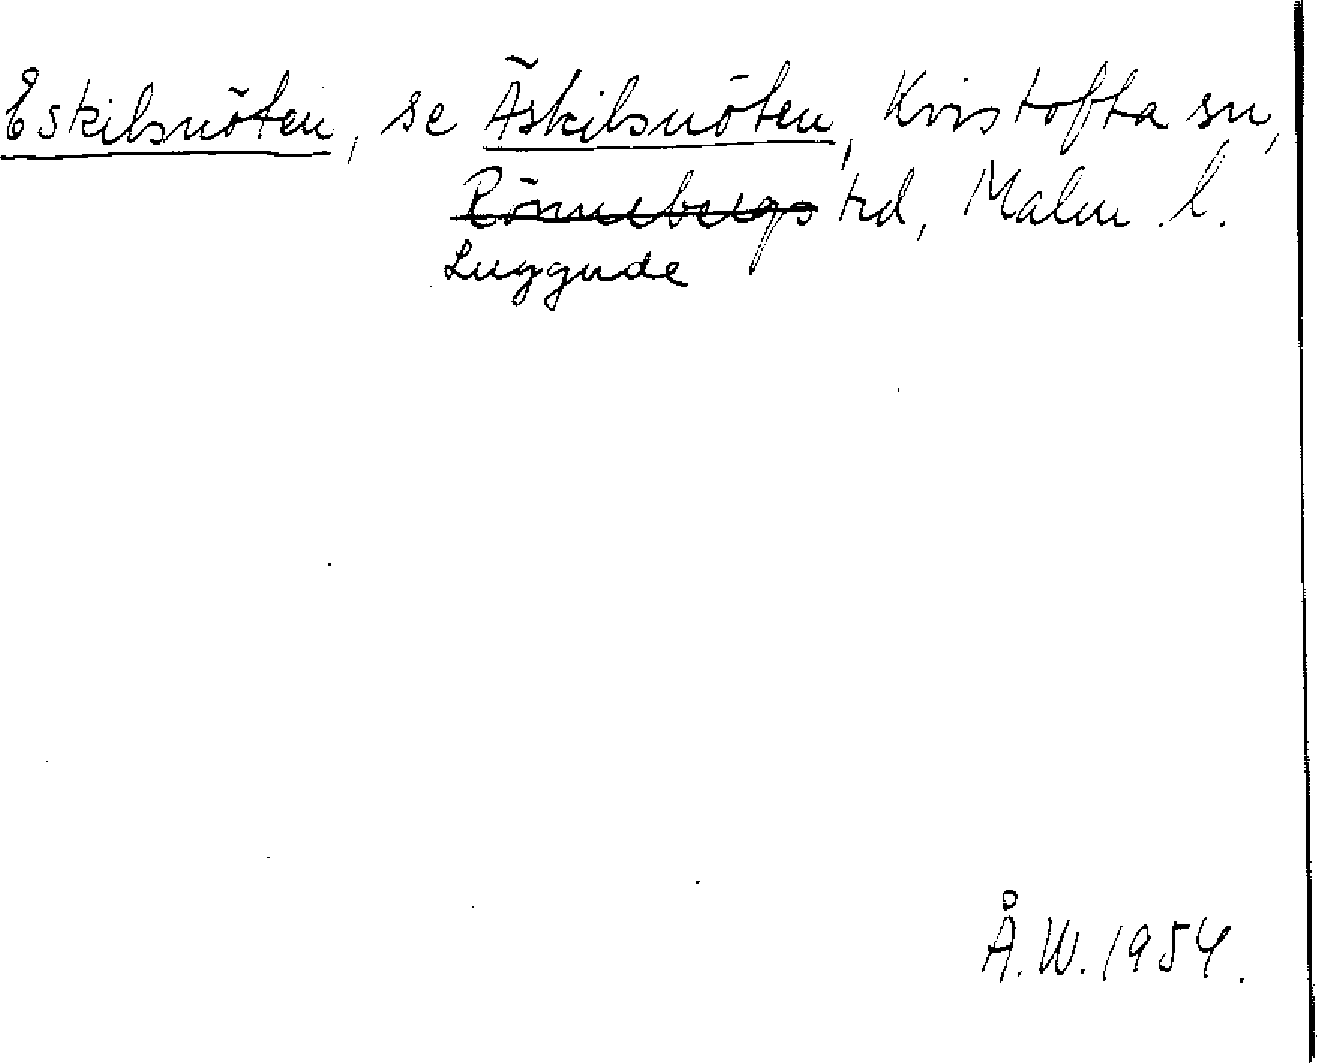 Eskilsnöten, se Äskilsnöten, Kristofta sn,
Rönnebergs hd, Malm. l.
Luggude
Å.W. 1954.